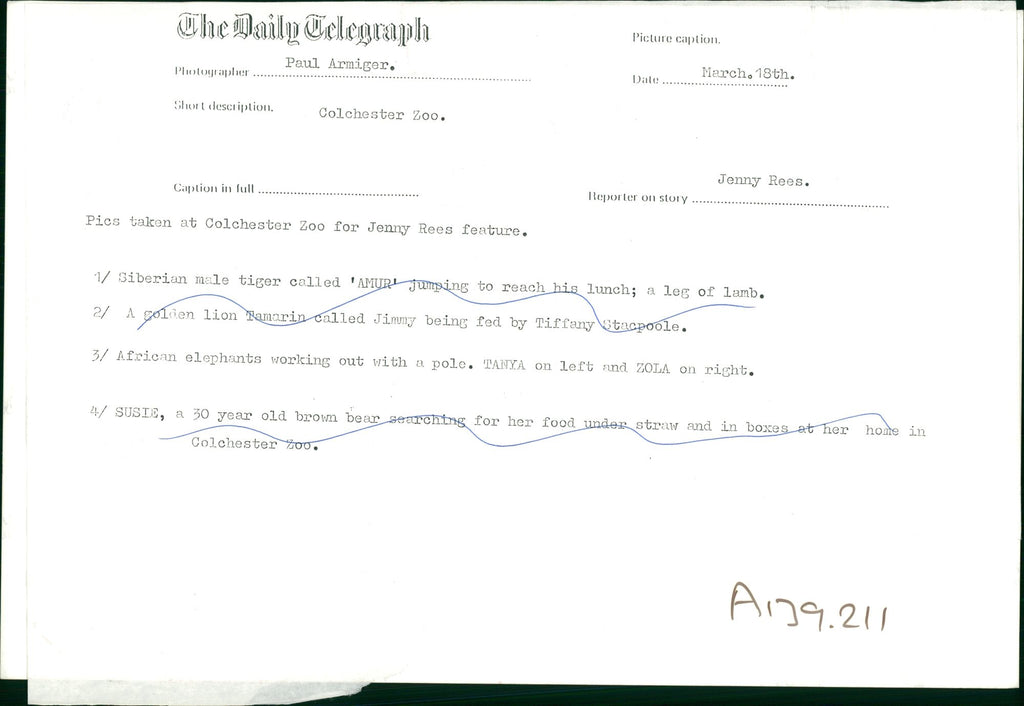 The Daily Telegraph
Picture caption.
Photographer Paul Armiger.
Date March.18th.
Short description. Colchester Zoo.
Caption in full
Reporter on story Jenny Rees.
Pics taken at Colchester Zoo for Jenny Rees feature.
1/ Siberian male tiger called 'AMUR' jumping to reach his lunch; a leg of lamb.
2/ A golden lion Tamarin called Jimmy being fed by Tiffany Stacpoole.
3/ African elephants working out with a pole. TANYA on left and ZOLA on right.
4/ SUSIE, a 30 year old brown bear searching for her food under straw and in boxes at her home in
Colchester Zoo.